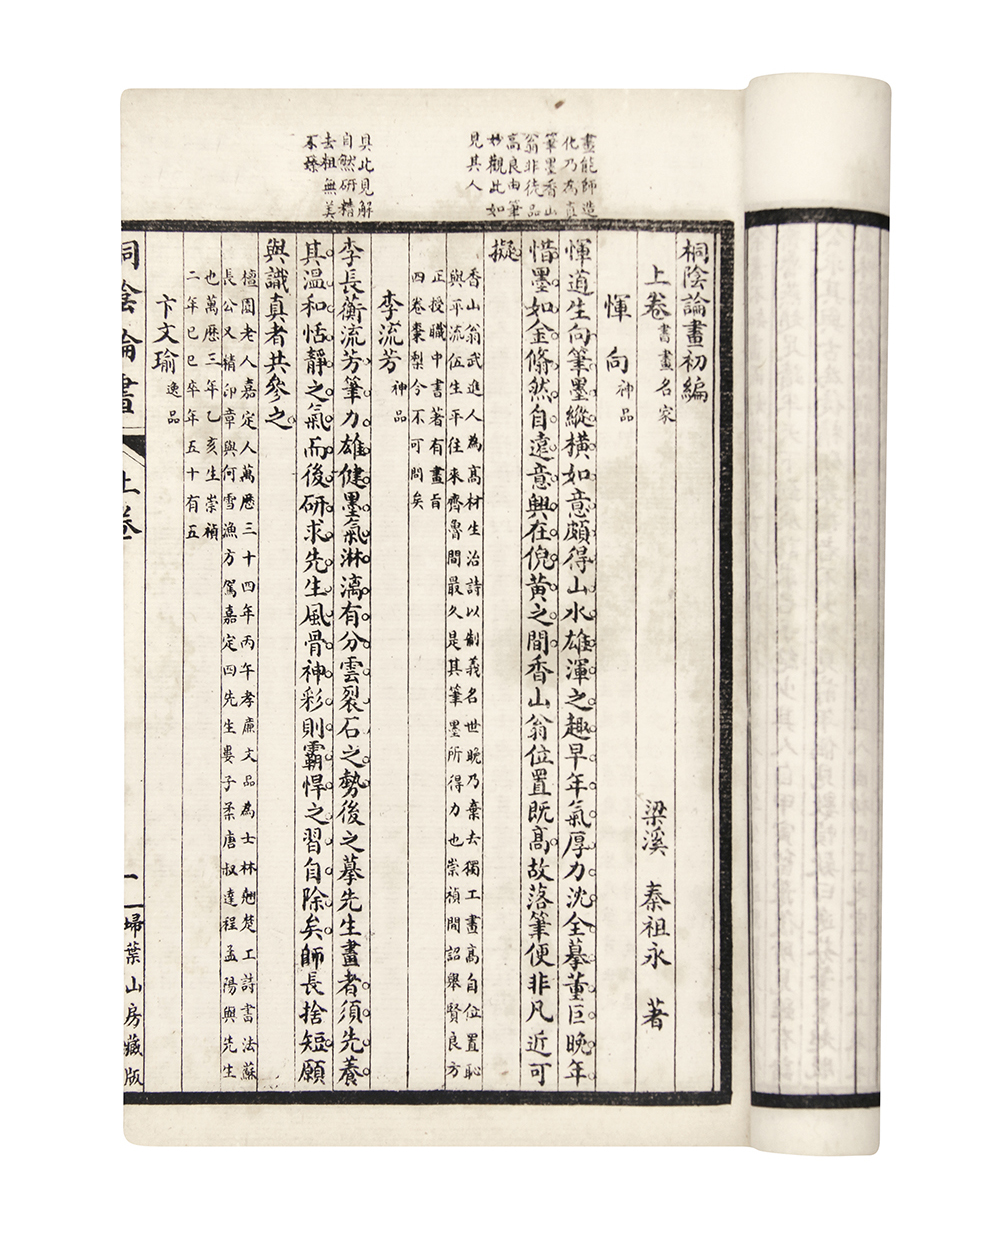 畫能師造
化乃為真
筆墨香山
翁非徒品
高良由筆
妙觀此如
見其人
具此見解
自然研精
去粗無美
不臻
桐陰論畫初編
上卷 書畫名家
梁溪 秦祖永 著
惲 向 神品
惲道生向筆墨縱橫如意頗得山水雄渾之趣早年氣厚力沈全摹董巨晚年
惜墨如金翛然自遠意興在倪黃之間香山翁位置既高故落筆便非凡近可
擬
香山翁武進人為高材生治詩以制義名世晚乃棄去獨工畫高自位置恥
與平流伍生平往來齊魯間最久是其筆墨所得力也崇禎間詔舉賢良方
正授職中書著有畫旨
四卷棗梨今不可問矣
李流芳 神品
李長蘅流芳筆力雄健墨氣淋漓有分雲裂石之勢後之摹先生畫者須先養
其溫和恬靜之氣而後研求先生風骨神彩則霸悍之習自除矣師長捨短願
與識真者共參之
檀園老人嘉定人萬歷三十四年丙午孝廉文品為士林翹楚工詩書法蘇
長公又精印章與何雪漁方駕嘉定四先生婁子柔唐叔達程孟陽與先生
也萬歷三年乙亥生崇禎
二年己巳卒年五十有五
卞文瑜 逸品
桐陰論畫
上卷
一
埽葉山房藏版